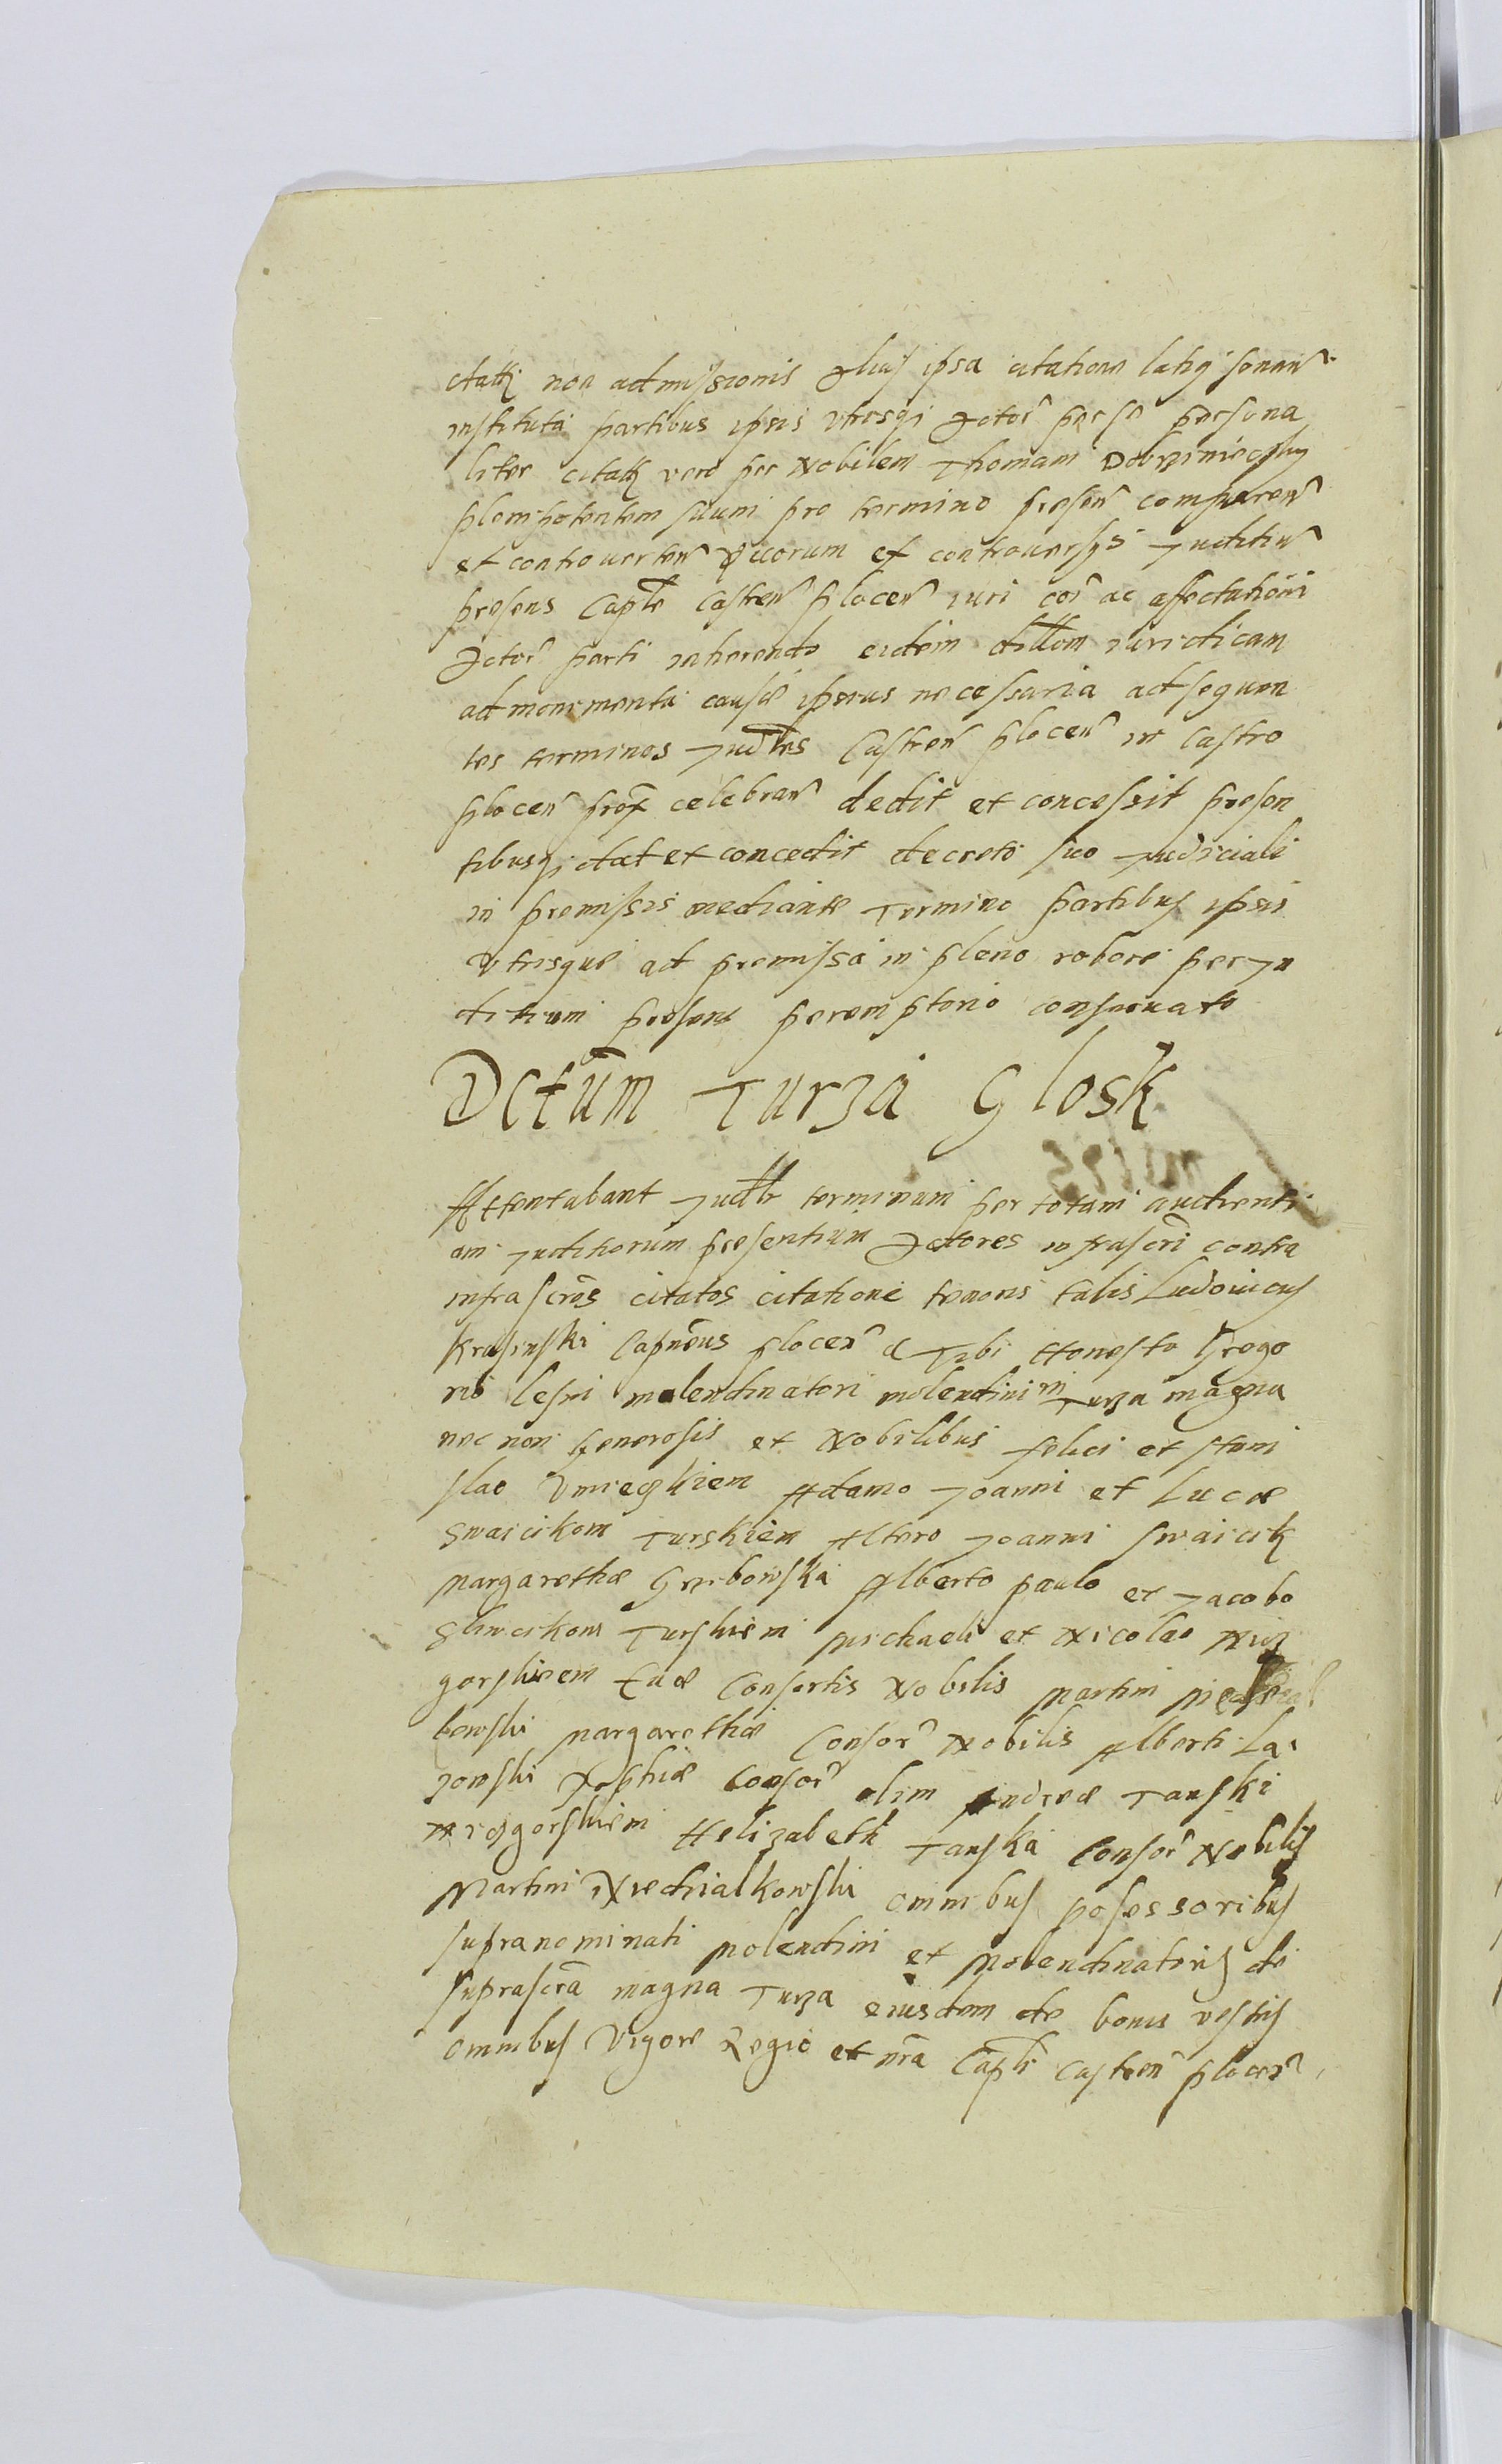 non admissionis alias ipsa citatione latius sonan
instituta partibus ipsis utrisque Actor per se persona
liter vero per Nobilem Thomam
plenipotentem suum pro termino presen comparen
et controverten quorum ex controversys Juditiu
presens Caple Castren plocen iuri coi ac affectationi
Actor parti inherendo eidem dillom iuridicam
ad monimenta causæ ipsius necessaria ad sequen
tes terminos Judles Castren plocen in Castro
plocen prox celebran dedit et concessit presen
tibusq dat et concedit decreto suo Judiciali
in premissis mediante Termino partibus ipsis
Utrisque ad premissa in pleno robore per Ju
ditium presens peremptorio conservato
Dctum Turza Glosk
Attentabant Judlr terminum per totam audienti
am Juditiorum presentium Actores infrascri contra
infrascros citatos citatione tenoris talis Ludovicus
Krasinski Capneus plocen Tibi Honesto Grego
rio molendinatori molendini in Turza magna
nec non Generosis et Nobilibus felici et stani
slao Adamo Joanni et Lucæ
Swaicikom Turskiem Altero Joanni Swaicik
Margarethæ Grzibowska Alberto paulo et Jacobo
Turskiem Michaeli et Nicolao
gorskiem Euæ Consortis Nobilis Martini
bowski Margarethæ Consor Nobilis Alberti La
jowski Zophiæ Consor olim Andreæ Tanski
Helizabeth Tanska Consor Nobilis
Martini Niedzialkowski omnibus possessoribus
supranominati molendini et Molendinatoris de
suprascra magna Turza eiusdem de bonis vestris
omnibus Vigore Regio et nra Capli Castren plocen